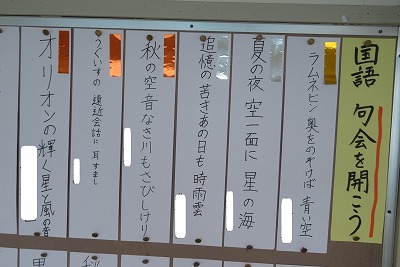 国語 句会を開こう
ラムネビン 奥をのぞけば 青い空
夏の夜 空一面に 星の海
追憶の苦きあの日も 時雨雲
秋の空音なき川もさびしけり
うぐいすの 遠近会話に 耳すまし
オリオンの輝く星と風の音